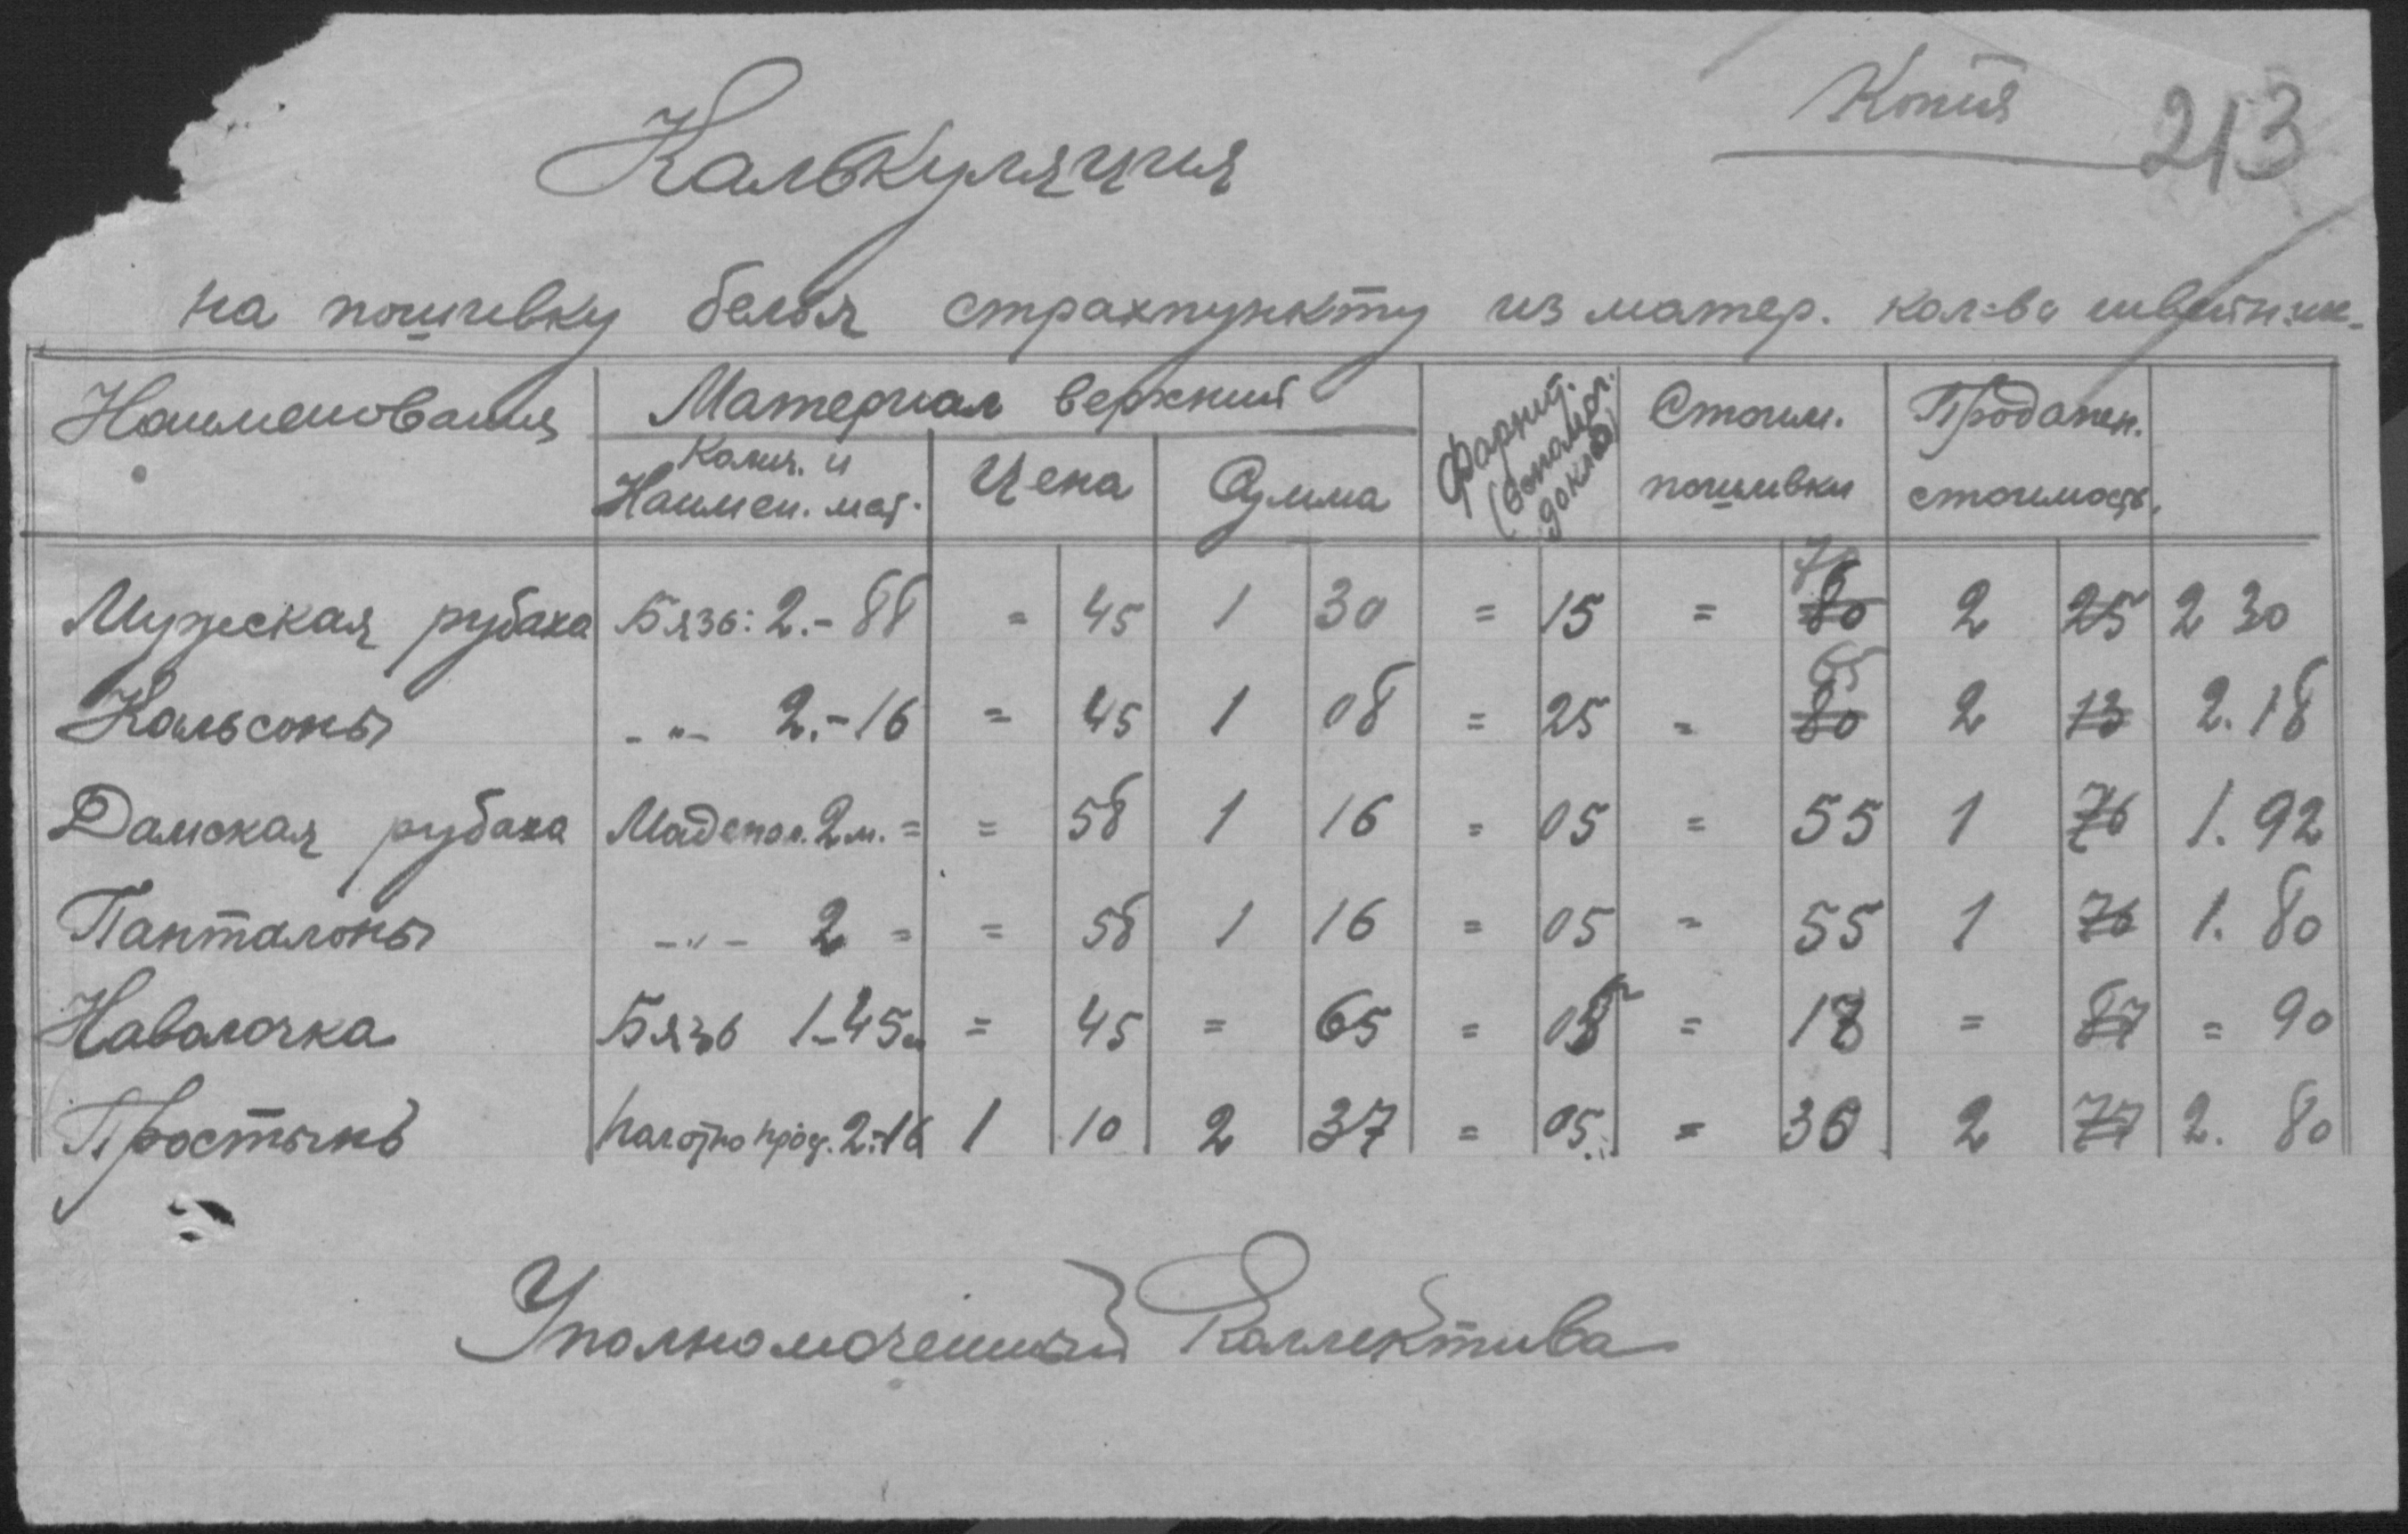 Копия 213
Калькуляция
на пошивку белья страхпункту из матер. кол-ва швейник.
Наименования Материал верхний Стоим. пошивки Продажн. стоимость
Колич. и Наимен. мат. Цена Сумма
Мужская рубаха Бязь: 2.-88 = 45 1 30 = 15 = 80 2 25 2 30
Кальсоны -"- 2.-16 = 45 1 08 = 25 = 65 80 2 13 2.18
Дамская рубаха Мадепол. 2 м. = = 58 1 16 = 05 = 55 1 76 1.92
Панталоны -"- 2 = = 58 1 16 = 05 = 55 1 76 1.80
Наволочка Бязь 1-45 м = 45 = 65 = 05 = 18 = 87 = 90
Простынь Полотно прод. 2.-16 1 10 2 37 = 05 = 36 2 77 2. 80
Уполномоченный Коллектива